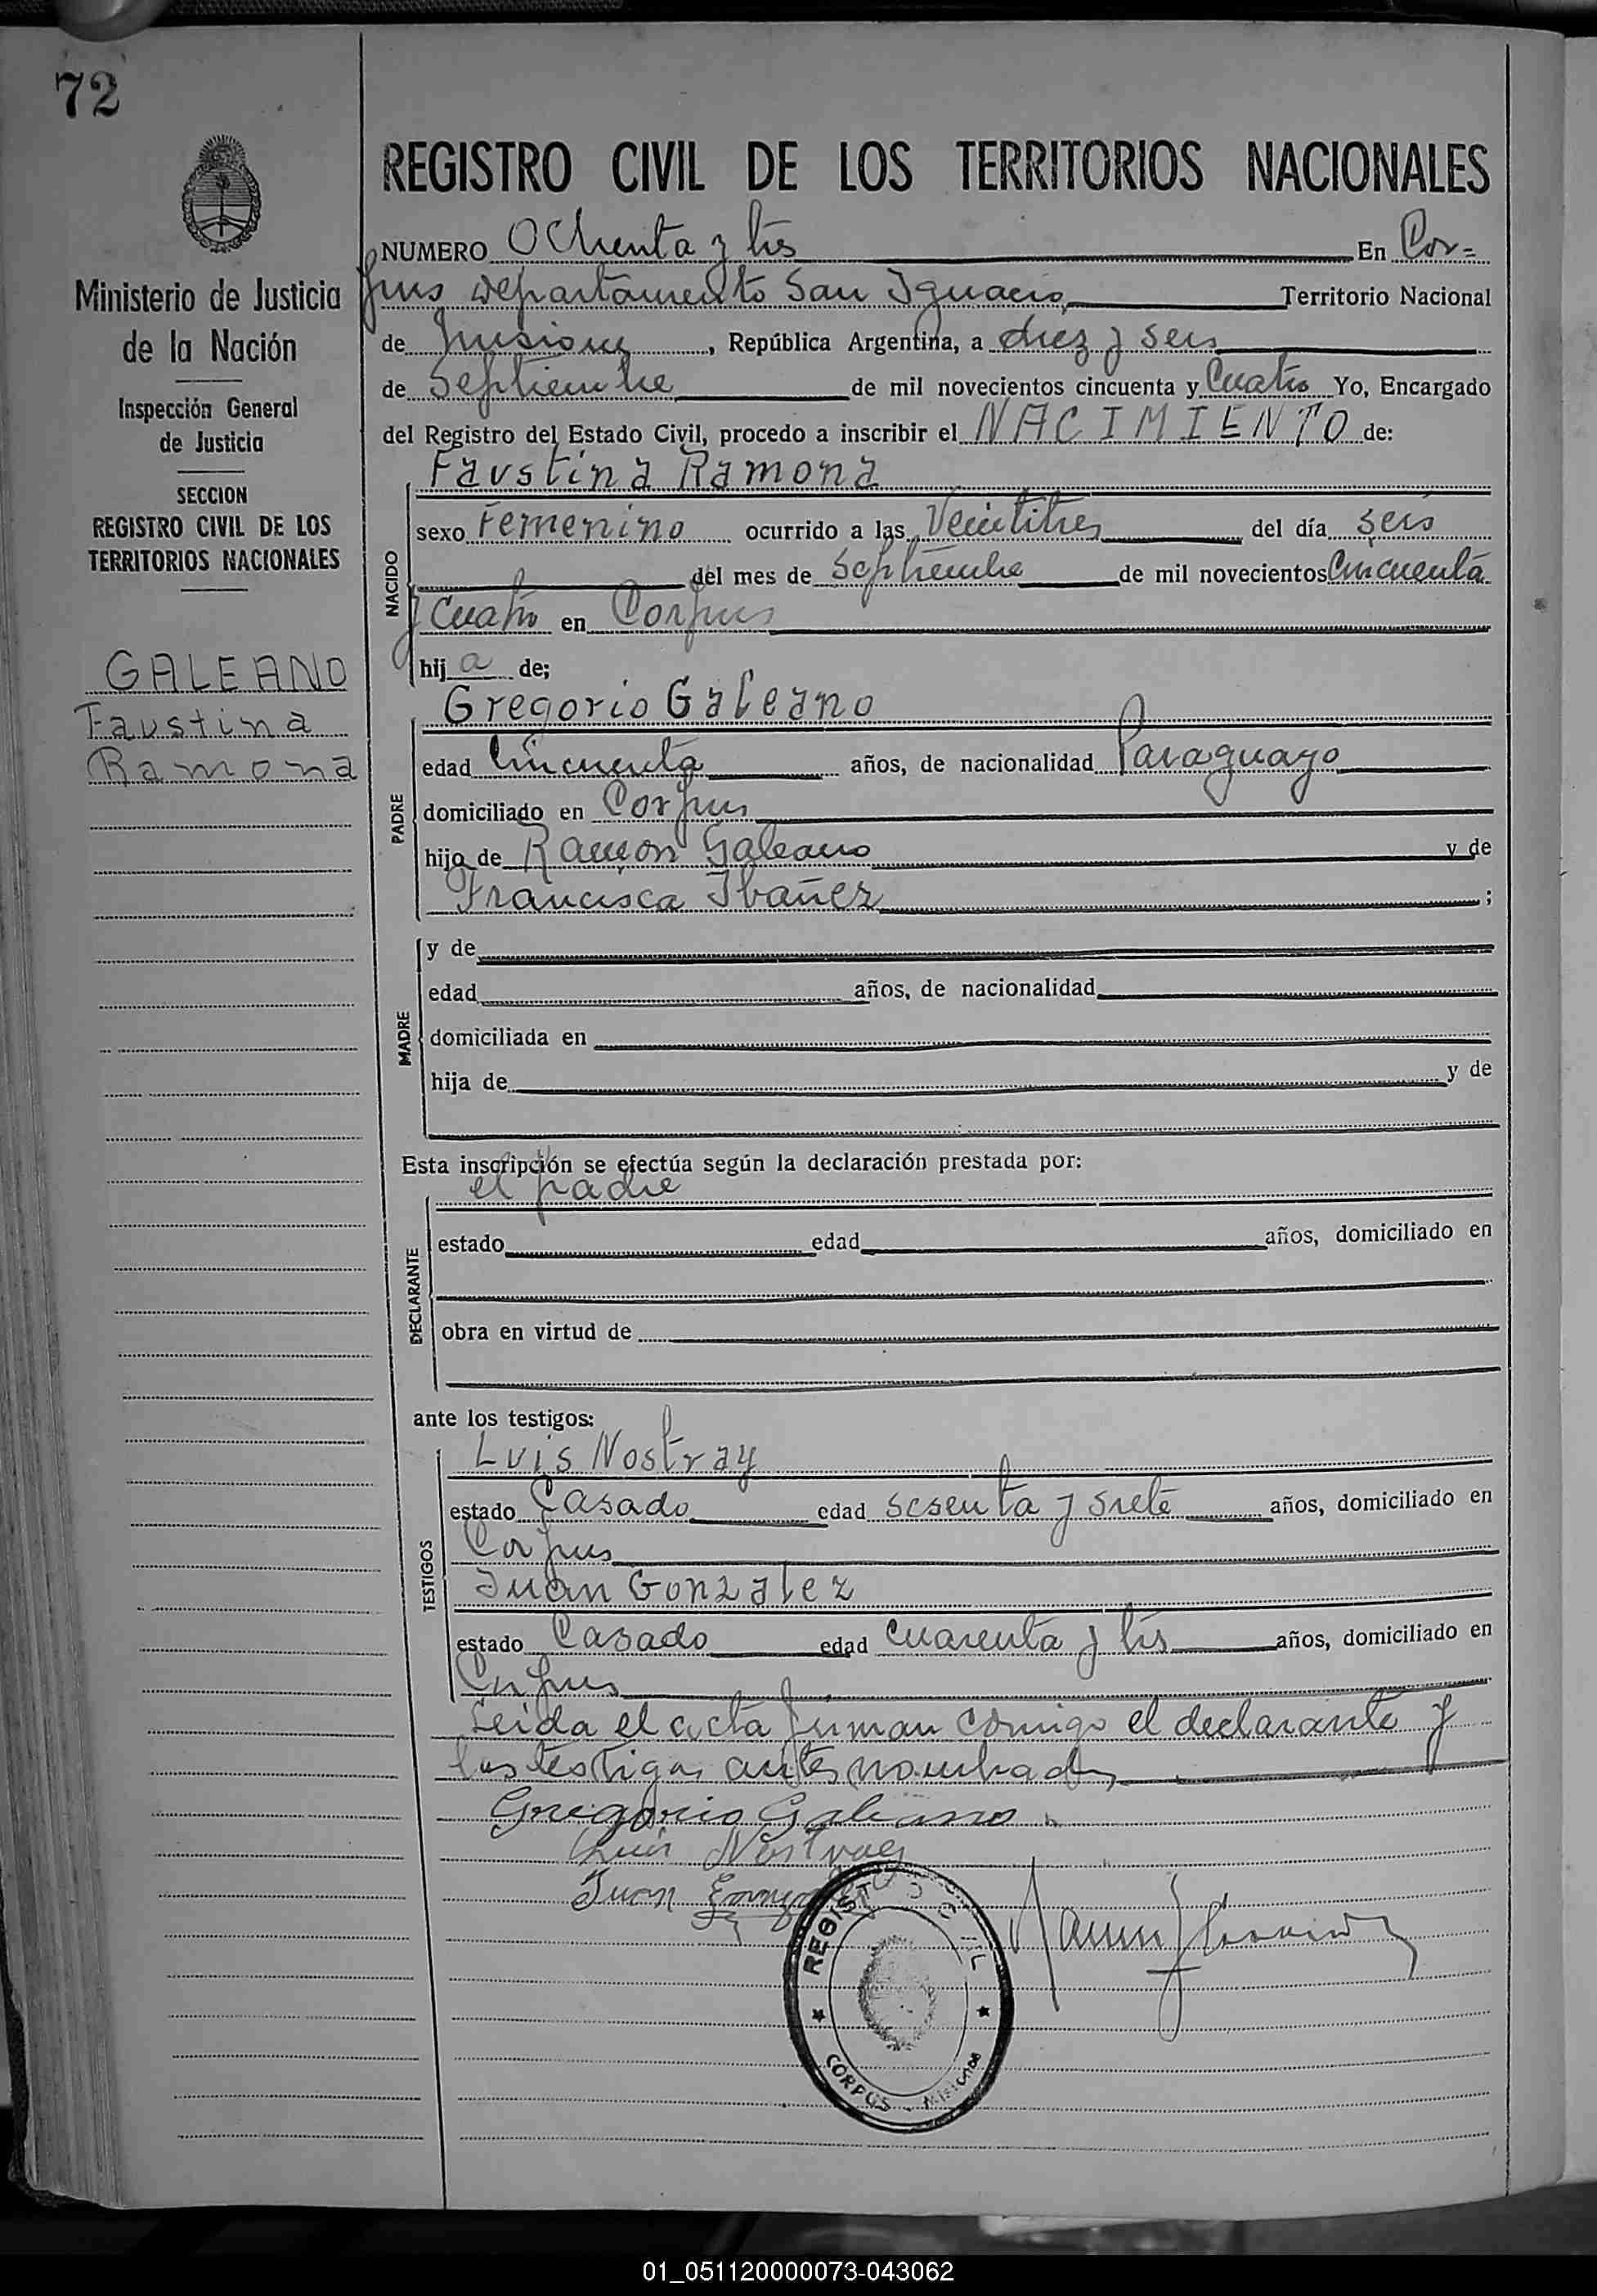 72
REGISTRO CIVIL DE LOS TERRITORIOS NACIONALES
NUMERO Ochenta y tres En Cor=
pus departamento San Ignacio Territorio Nacional
de Misiones, República Argentina, a diez y seis
de Septiembre de mil novecientos cincuenta y Cuatro Yo, Encargado
del Registro del Estado Civil, procedo a inscribir el NACIMIENTO de:
Ministerio de Justicia
de la Nación
Inspección General
de Justicia
SECCION
REGISTRO CIVIL DE LOS
TERRITORIOS NACIONALES
GALEANO
Faustina
Ramona
NACIDO
Faustina Ramona
sexo Femenino ocurrido a las Veintitres del día seis
del mes de Septiembre de mil novecientos Cincuenta
y Cuatro en Corpus
hija de;
PADRE
Gregorio Galeano
edad Cincuenta años, de nacionalidad Paraguayo
domiciliado en Corpus
hijo de Ramon Galeano y de
Francisca Ibañez ;
MADRE
y de
edad años, de nacionalidad
domiciliada en
hija de y de
Esta inscripción se efectúa según la declaración prestada por:
DECLARANTE
el padre
estado edad años, domiciliado en
obra en virtud de
ante los testigos:
TESTIGOS
Luis Nostray
estado Casado edad sesenta y siete años, domiciliado en
Corpus
Juan Gonzalez
estado Casado edad cuarenta y tres años, domiciliado en
Corpus
Leida el acta firman conmigo el declarante y
los testigos antes nombrados
Gregorio Galeano
Luis Nostray
Juan Gonzalez
REGISTRO CIVIL
CORPUS - MISIONES
01_051120000073-043062